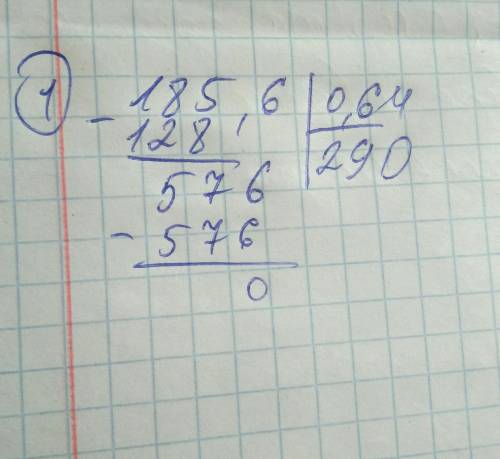 1 - 185,6 | 0,64
128 | 290
576
- 576
0